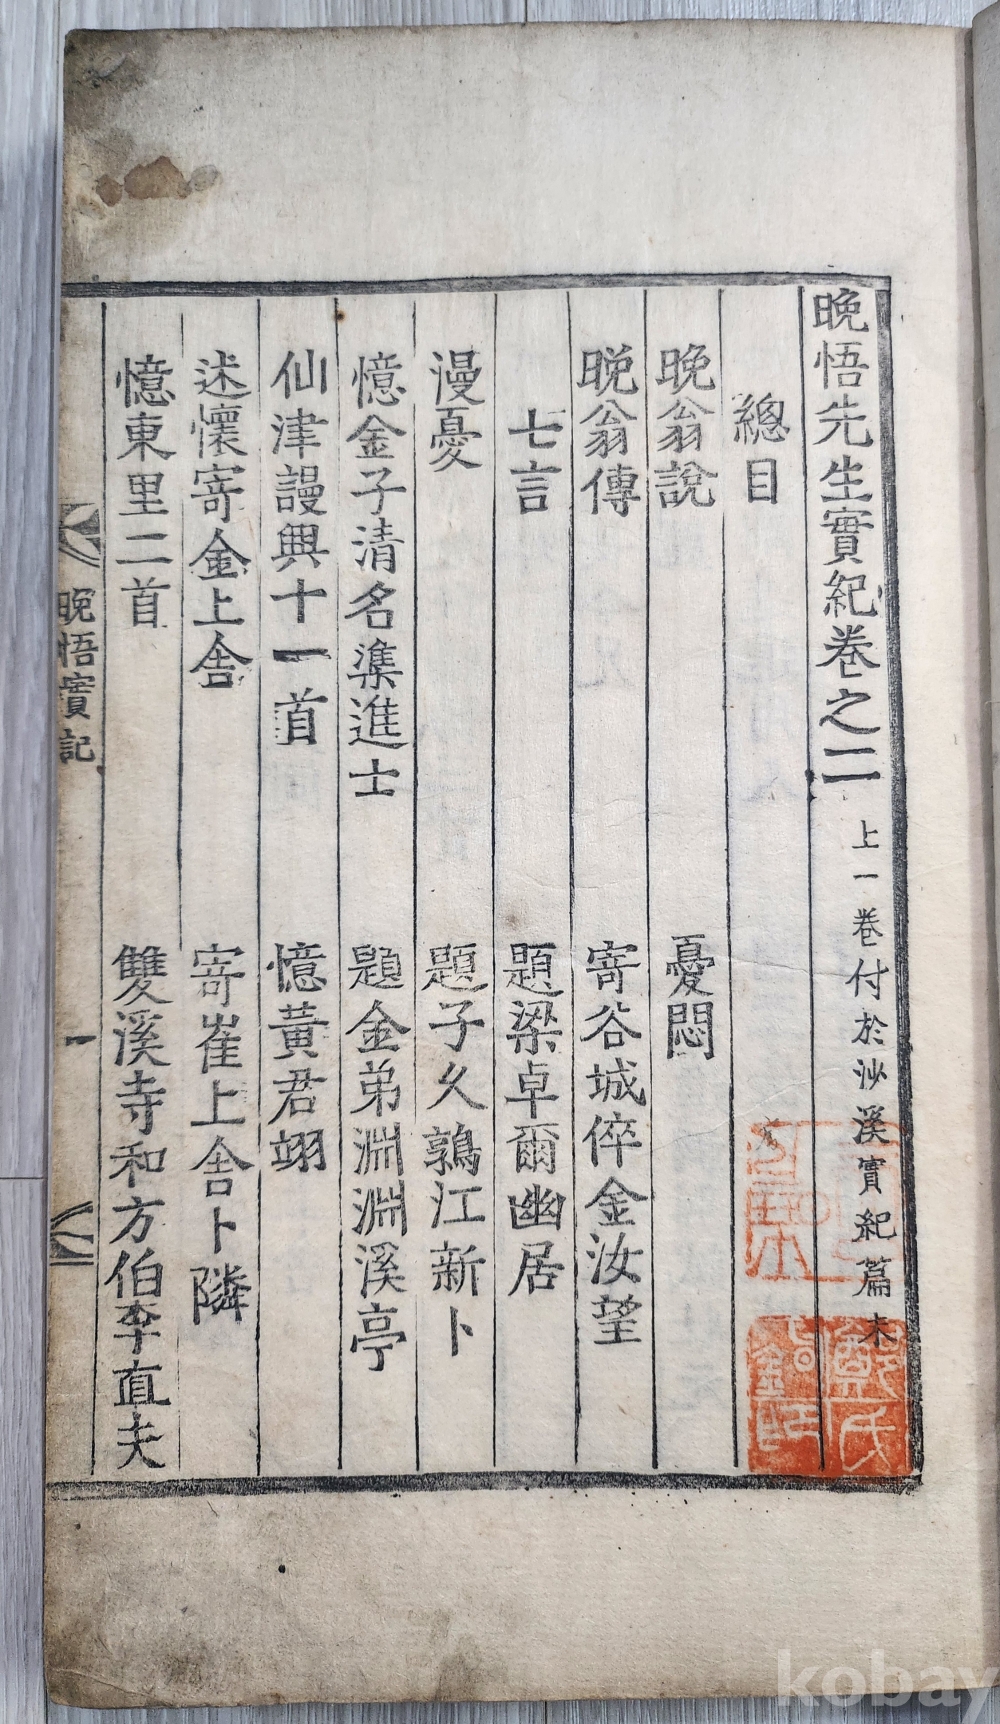 晩悟先生實紀卷之二 上一卷付於沙溪實紀篇末
總目
晩翁說 憂悶
晩翁傳 寄谷城倅金汝望
七言 題梁卓爾幽居
漫憂 題子久鶉江新卜
憶金子清名準進士 題金弟淵淵溪亭
仙津謾興十一首 憶黃君翊
述懷寄金上舍 寄崔上舍卜隣
憶東里二首 雙溪寺和方伯李直夫
晩悟實記 一
kobay